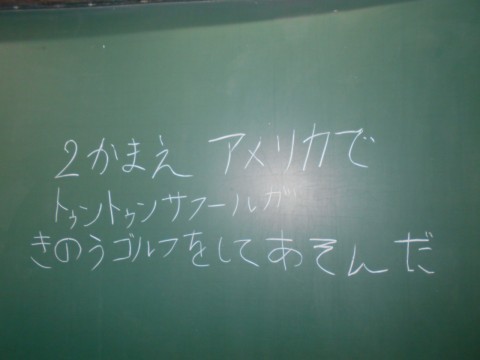 2かまえ アメリカで
トゥントゥンサフールが
きのうゴルフをしてあそんだ